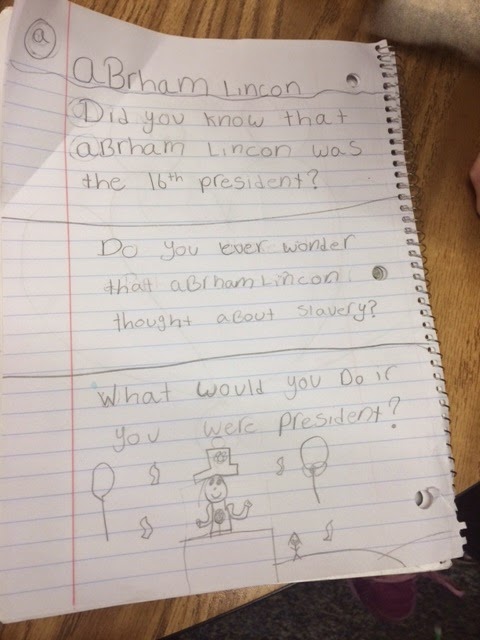 a
aBrham Lincon
Did you know that
aBrham Lincon was
the 16th president?
Do you ever wonder
that aBrham Lincon
thought aBout slavery?
What would you Do if
you were president?